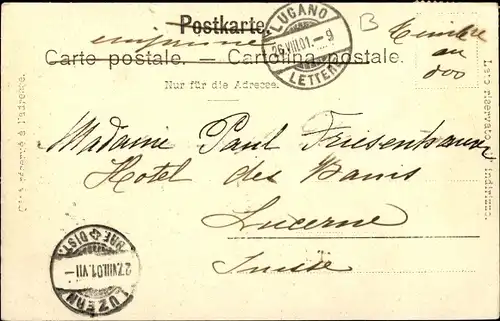 Postkarte.
imprimé
Carte postale. — Cartolina postale.
Nur für die Adresse.
LUGANO
26.VIII.01.-9
LETTERE
B
Timbre
au
dos
Côté réservé à l'adresse.
Lato riservato all'indirizzo.
Madame Paul
Hotel des Bains
Lucerne
Suisse
LUZERN
27.VIII.01.VII-
BRF. DIST.